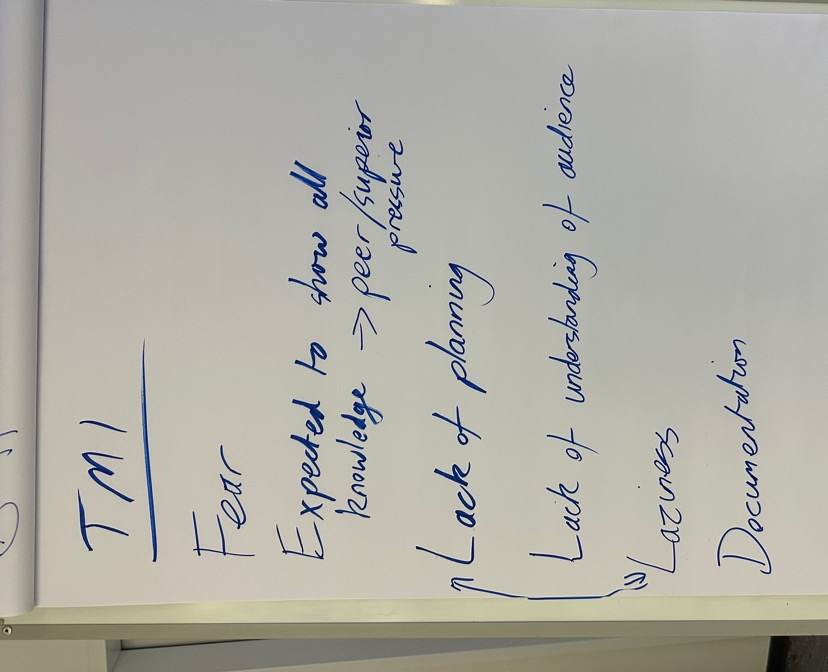 TMI
Fear
Expected to show all
knowledge → peer/superior
pressure
Lack of planning
Lack of understanding of audience
Laziness
Documentation